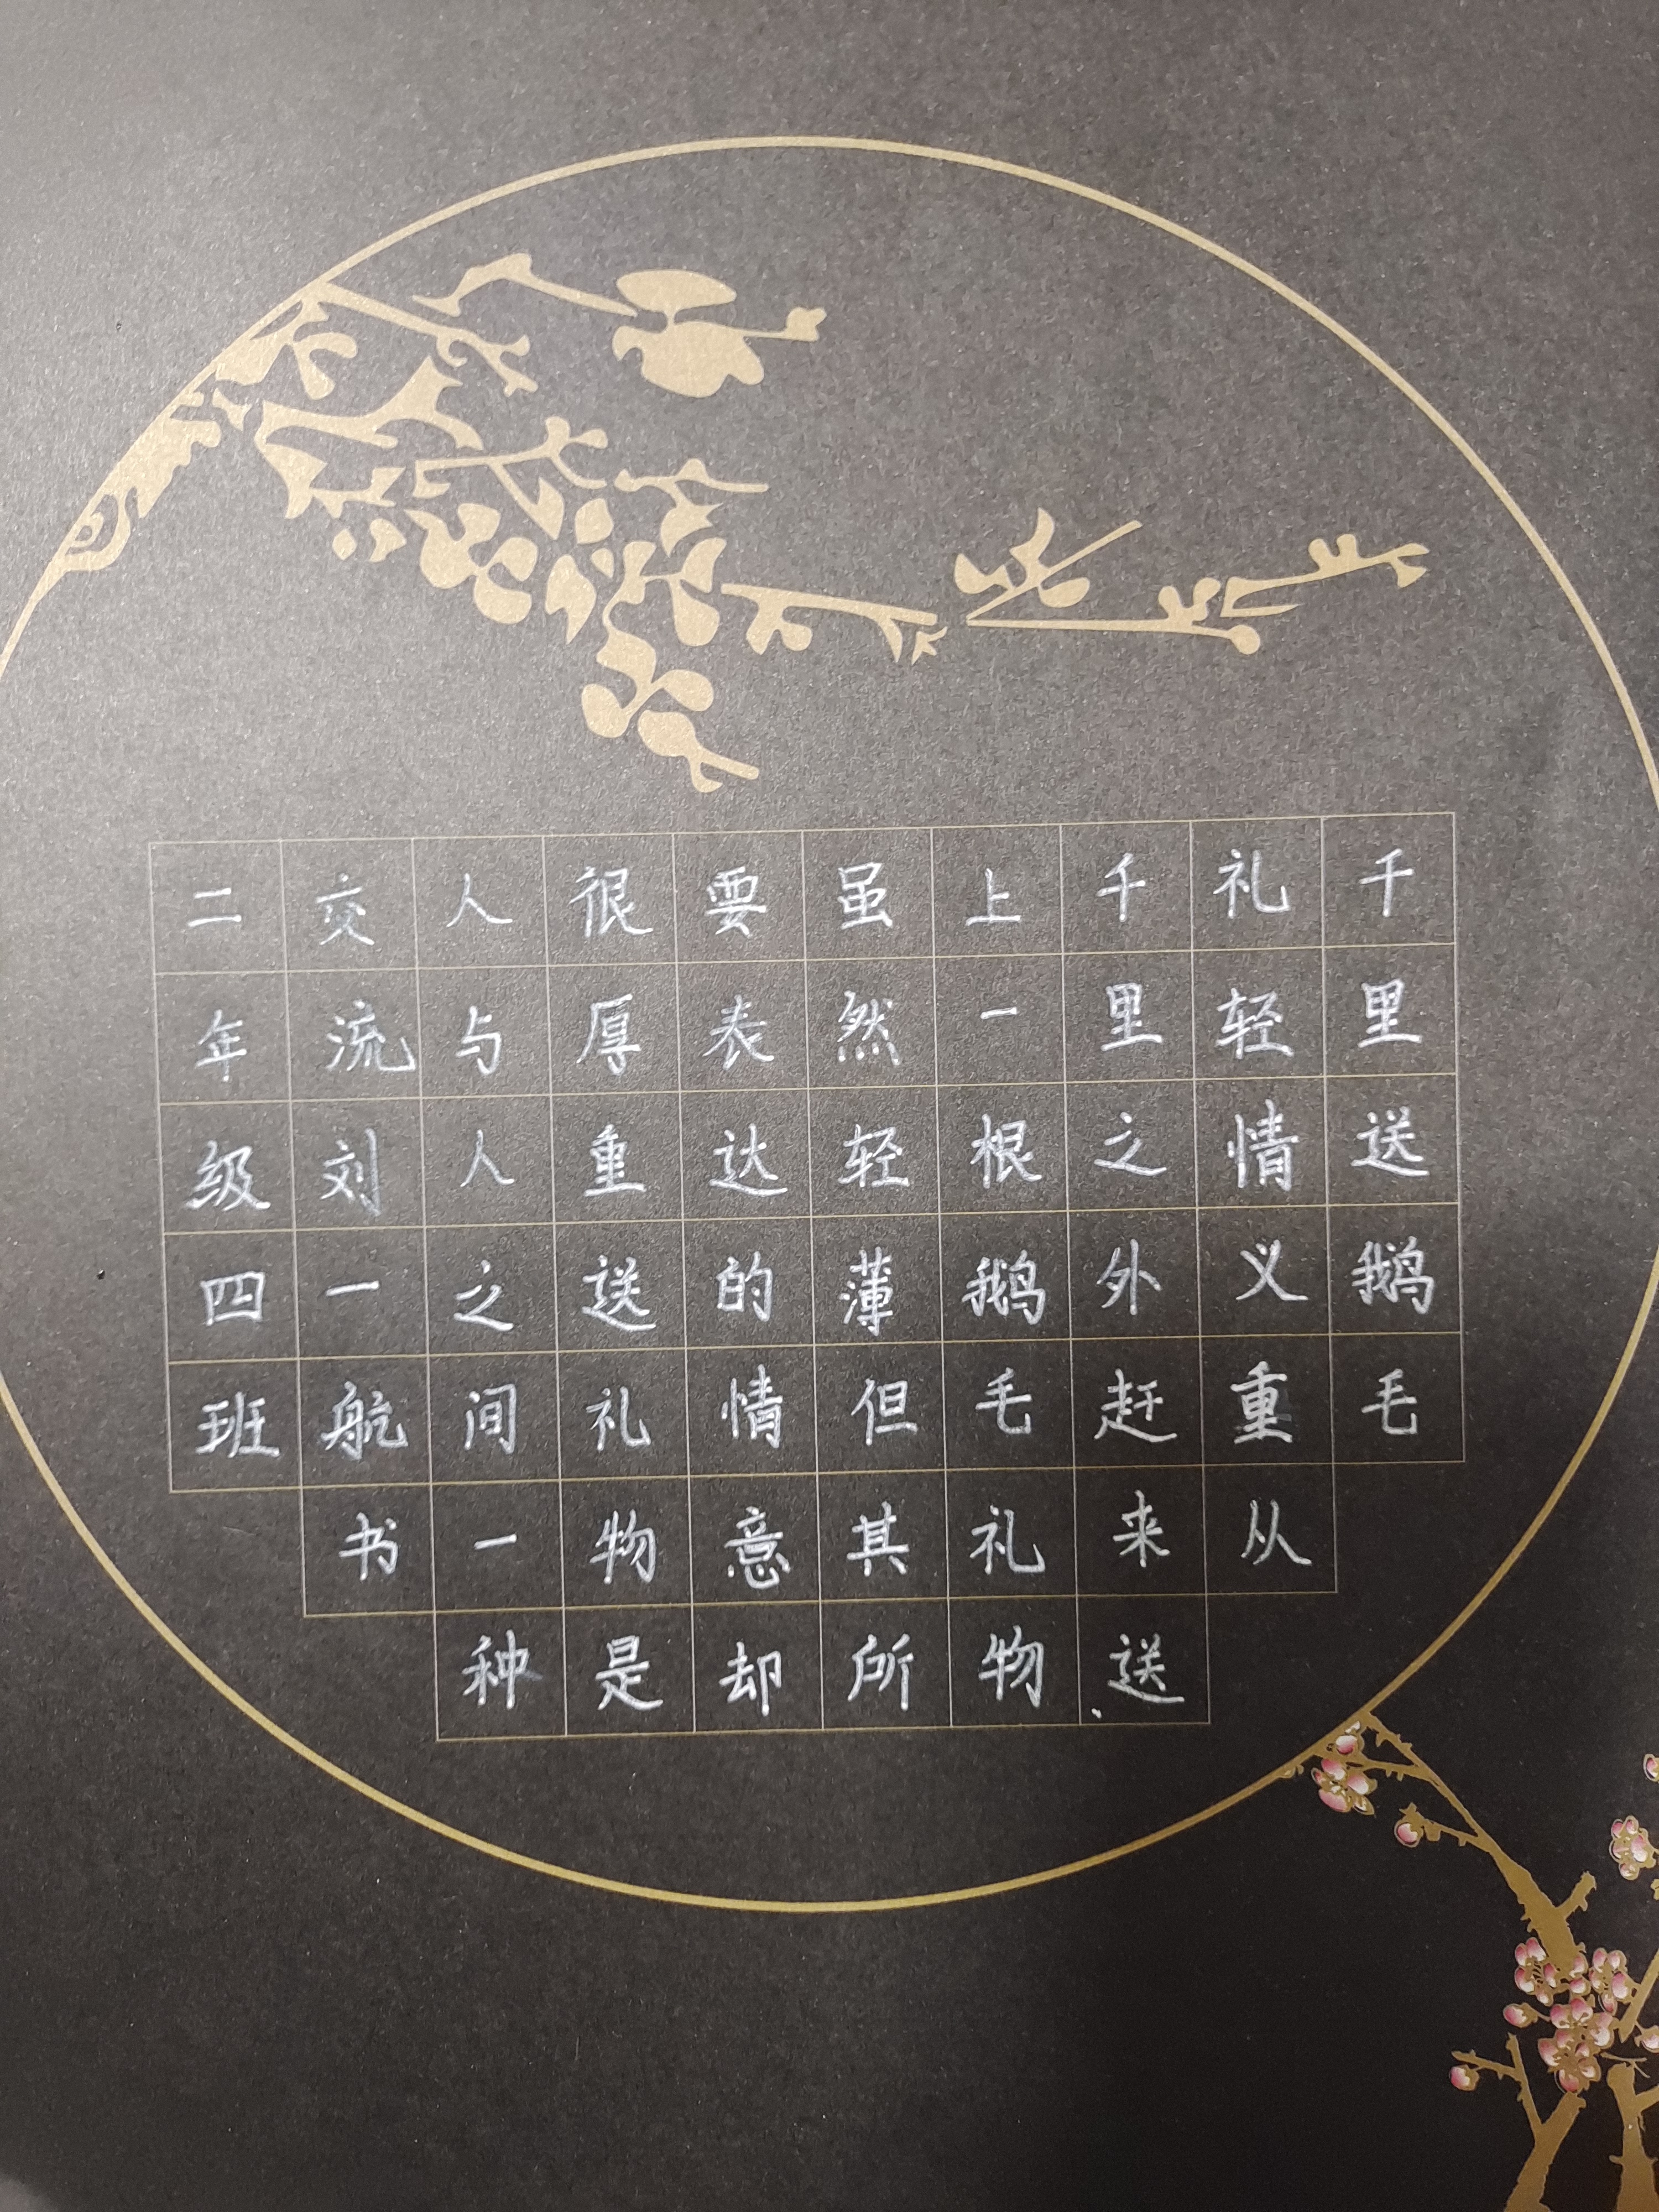 千里送鹅毛
礼轻情义重从
千里之外赶来送
上一根鹅毛礼物
虽然轻薄但其所
要表达的情意却
很厚重送礼物是
人与人之间一种
交流刘一航书
二年级四班